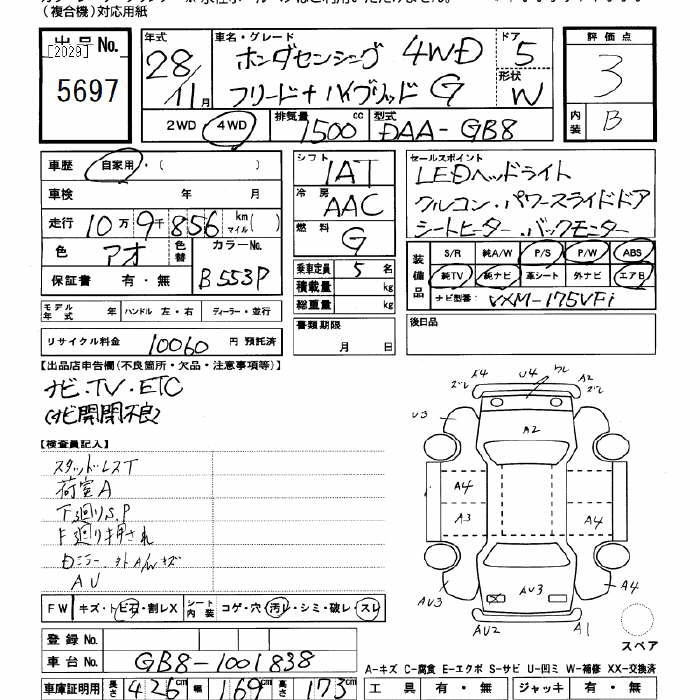 (複合機)対応用紙
出品No. [2029] 5697
年式 28/11月
車名・グレード ホンダセンシング 4WD
フリード+ハイブリッド G
ドア 5
形状 W
評価点 3
内装 B
2WD・4WD
排気量 1500 cc
型式 DAA-GB8
車歴 自家用・( )
車検 年 月
走行 10万9千856 km マイル( )
色 アオ
色替
カラーNo. B553P
保証書 有・無
シフト IAT
冷房 AAC
燃料 G
乗車定員 5 名
積載量 kg
総重量 kg
書類期限
月 日
セールスポイント
LEDヘッドライト
クルコン・パワースライドドア
シートヒーター・バックモニター
装備品
S/R 純A/W P/S P/W ABS
純TV 純ナビ 革シート 外ナビ エアB
ナビ型番: VXM-175VFi
後日品
モデル年式 年 ハンドル 左・右 ディーラー・並行
リサイクル料金 10060 円 預託済
【出品店申告欄(不良箇所・欠品・注意事項等)】
ナビ・TV・ETC
(ナビ開閉不良)
【検査員記入】
スタッドレスT
荷室A
下廻りS.P
F廻り押され
AU
FW キズ・トビ石・割レX
シート内装 コゲ・穴・汚レ・シミ・破レ・スレ
登録No.
車台No. GB8-1001838
車庫証明用 長さ 426 cm 幅 169 cm 高さ 173 cm
A4 ズレ U4 ワレ A2 ズレ
U3
A2
A4
A3 A4
AU3
AU3 A4
AU2 A1
スペア
A-キズ C-腐食 E-エクボ S-サビ U-凹ミ W-補修 XX-交換済
工具 有・無 ジャッキ 有・無